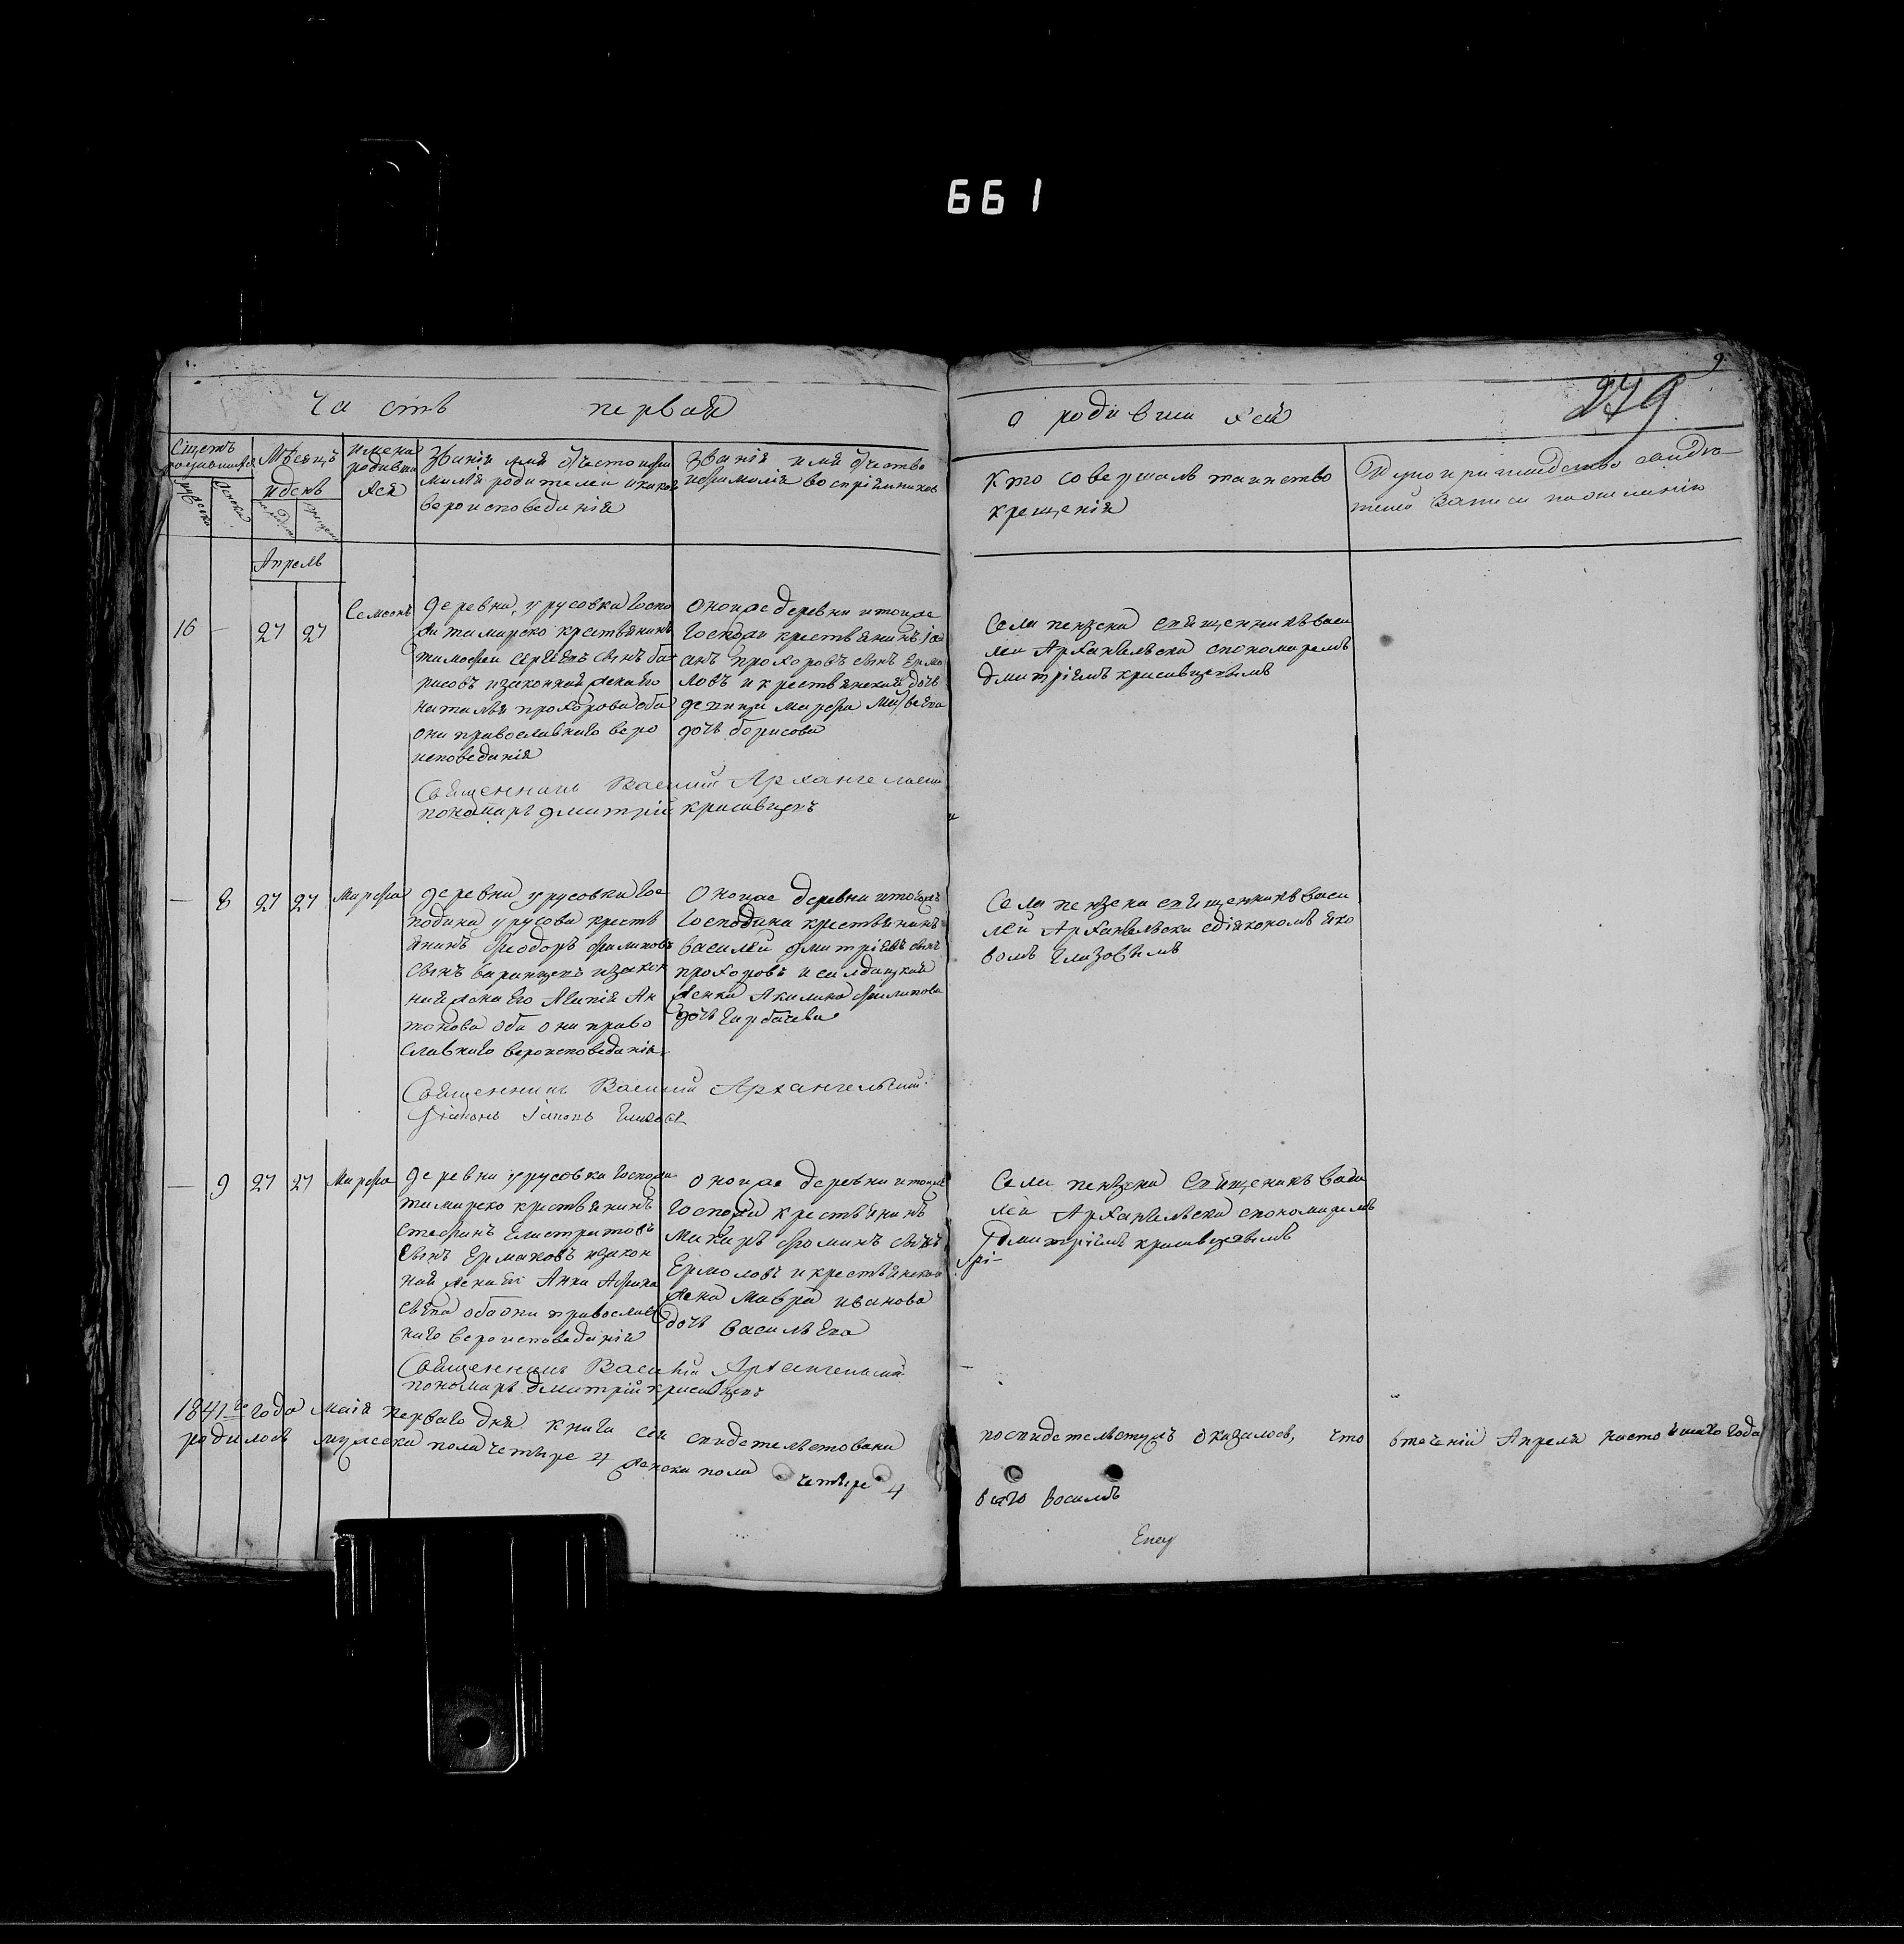 661
9
279
Часть первая
о родившихся
Щетъ родившихся
Мѣсяцъ и день
имена родившихся
Званіе имя отчество и фамилія родителей и какого вероисповеданія
Званіе имя отчество и фамилія воспріемниковъ
Кто совершалъ таинство крещенія
записи по желанію
Апрель
16 — 27 27
Семеонъ
деревни урусовки Госпо
жи крестьянинъ
тимофеи Сергѣевъ сынъ бо
рисовъ и законная жена его
наталья прохорова оба
они православнаго веро
исповеданія
Оной же деревни и той же
Госпожи крестьянинъ іо
анъ прохоровъ сынъ Ермо
ловъ и крестьянская дочь
девица марфа
дочь борисова
Села пензена священникъ васи
леи Архангельски спономаремъ
дмитріемъ красавцевымъ
Священникъ Василій Архангельскій
пономарь дмитрій красавцевъ
— 8 27 27 Марфа
деревни урусовки Гос
подина урусова кресть
янинъ Феодоръ филиповъ
сынъ и закон
ная жена его Ан
тонова оба они право
славнаго вероисповеданія
Оной же деревни и тогожъ
Господина крестьянинъ
василеи дмитріевъ сынъ
прохоровъ и салдацкая
женка Акилина филипова
дочь Гарбачева
Села пензена священникъ васи
леи Архангельски сдіякономъ яко
вомъ Глазовымъ
Священникъ Василій Архангельскій
Діаконъ Іаковъ Глазовъ
— 9 27 27 Марфа
деревни урусовки Госпожи
крестьянинъ
стефанъ Елистратовъ
сынъ Ермаковъ и закон
ная жена его Анна Афана
сьева оба они православ
наго вероисповеданія
Оной же деревни и тойже
Госпожи крестьянинъ
Макаръ фоминъ сынъ
Ермоловъ и крестьянская
жена Мавра иванова
дочь васильева
Села пензена Священикъ васи
леи Архангельски спономаремъ
Дмитріемъ красавцевымъ
Священникъ Василій Архангельскій
пономарь дмитрій красавцевъ
1841го года Маія перваго дня книга сія свидетельствована по свидетельству оказалось, что втеченіи Апреля настоящаго Года
родилось мужеска пола четыре 4 женска пола четыре 4 всего восемь